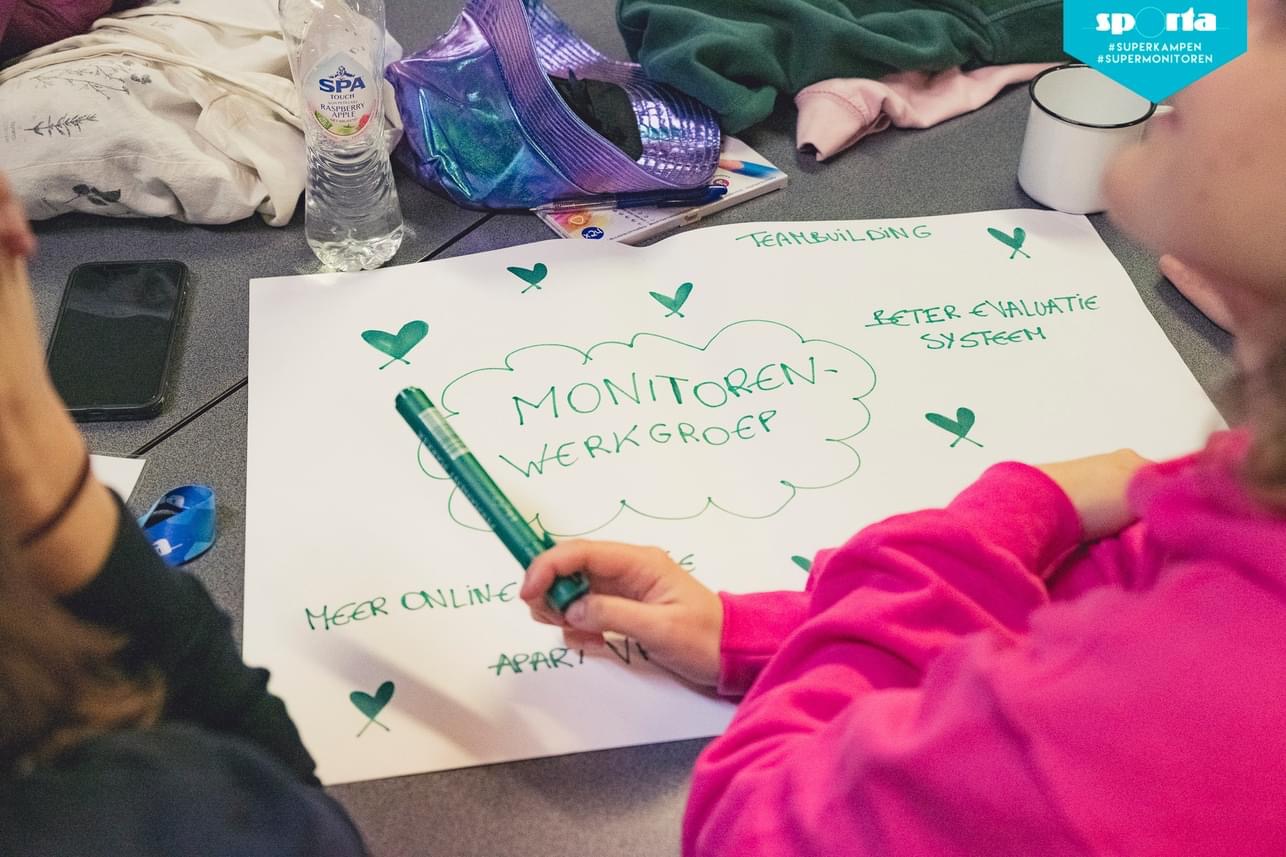 sporta
#SUPERKAMPEN
#SUPERMONITOREN
SPA
TOUCH
RASPBERRY
APPLE
X24
TEAMBUILDING
BETER EVALUATIE
SYSTEEM
MONITOREN-
WERKGROEP
MEER ONLINE
APART